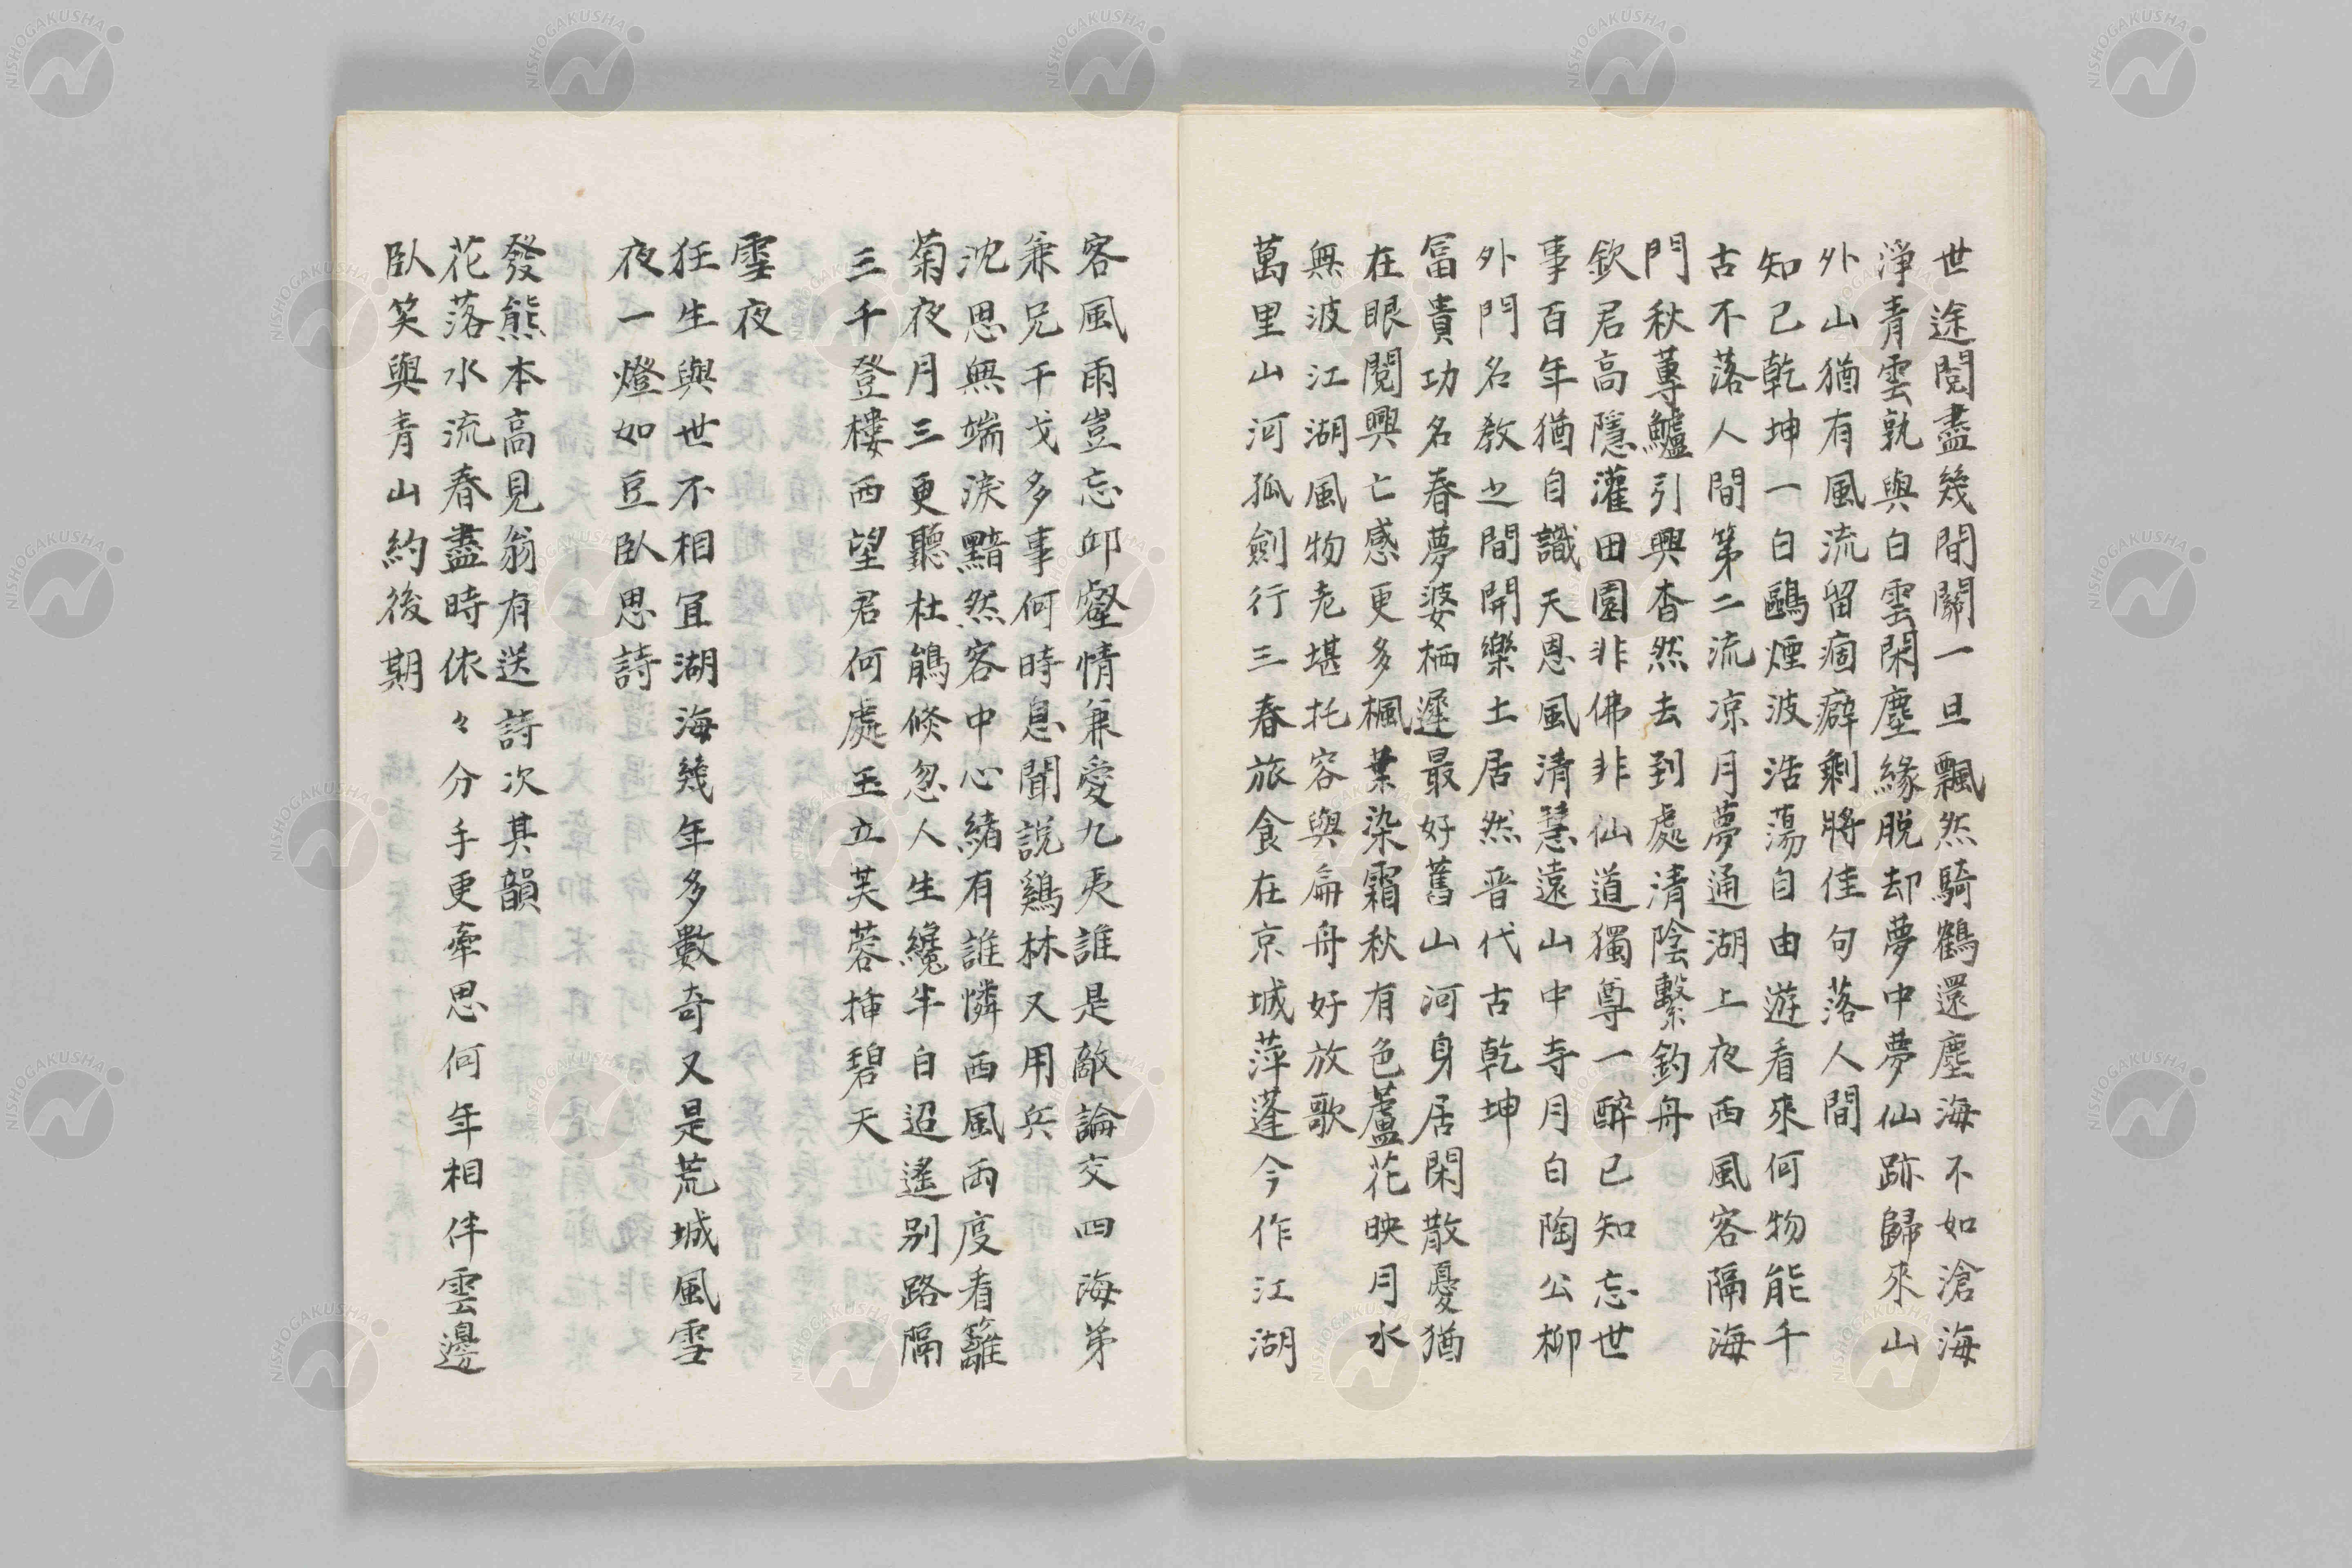 世途閲盡幾間關一旦飄然騎鶴還塵海不如滄海
淨青雲孰與白雲閑塵緣脱却夢中夢仙跡歸來山
外山猶有風流留痼癖剩將佳句落人間
知己乾坤一白鷗煙波浩蕩自由遊看來何物能千
古不落人間第二流凉月夢通湖上夜西風客隔海
門秋蓴鱸引興杳然去到處清陰繫釣舟
欽君高隱灌田園非佛非仙道獨尊一醉已知忘世
事百年猶自識天恩風清慧遠山中寺月白陶公柳
外門名教之間開樂土居然晋代古乾坤
冨貴功名春夢婆栖遲最好舊山河身居閑散憂猶
在眼閲興亡感更多楓葉染霜秋有色蘆花映月水
無波江湖風物老堪托容與扁舟好放歌
萬里山河孤劍行三春旅食在京城萍蓬今作江湖
客風雨豈忘邱壑情兼愛九夷誰是敵論交四海弟
兼兄干戈多事何時息聞説鷄林又用兵
沈思無端淚黯然客中心緒有誰憐西風雨度看籬
菊夜月三更聽杜鵑倐忽人生纔半白迢遙別路隔
三千登樓西望君何處玉立芙蓉挿碧天
雪夜
狂生與世不相宜湖海幾年多數奇又是荒城風雪
夜一燈如豆臥思詩
發熊本高見翁有送詩次其韻
花落水流春盡時依々分手更牽思何年相伴雲邊
臥笑與青山約後期
NISHOGAKUSHA